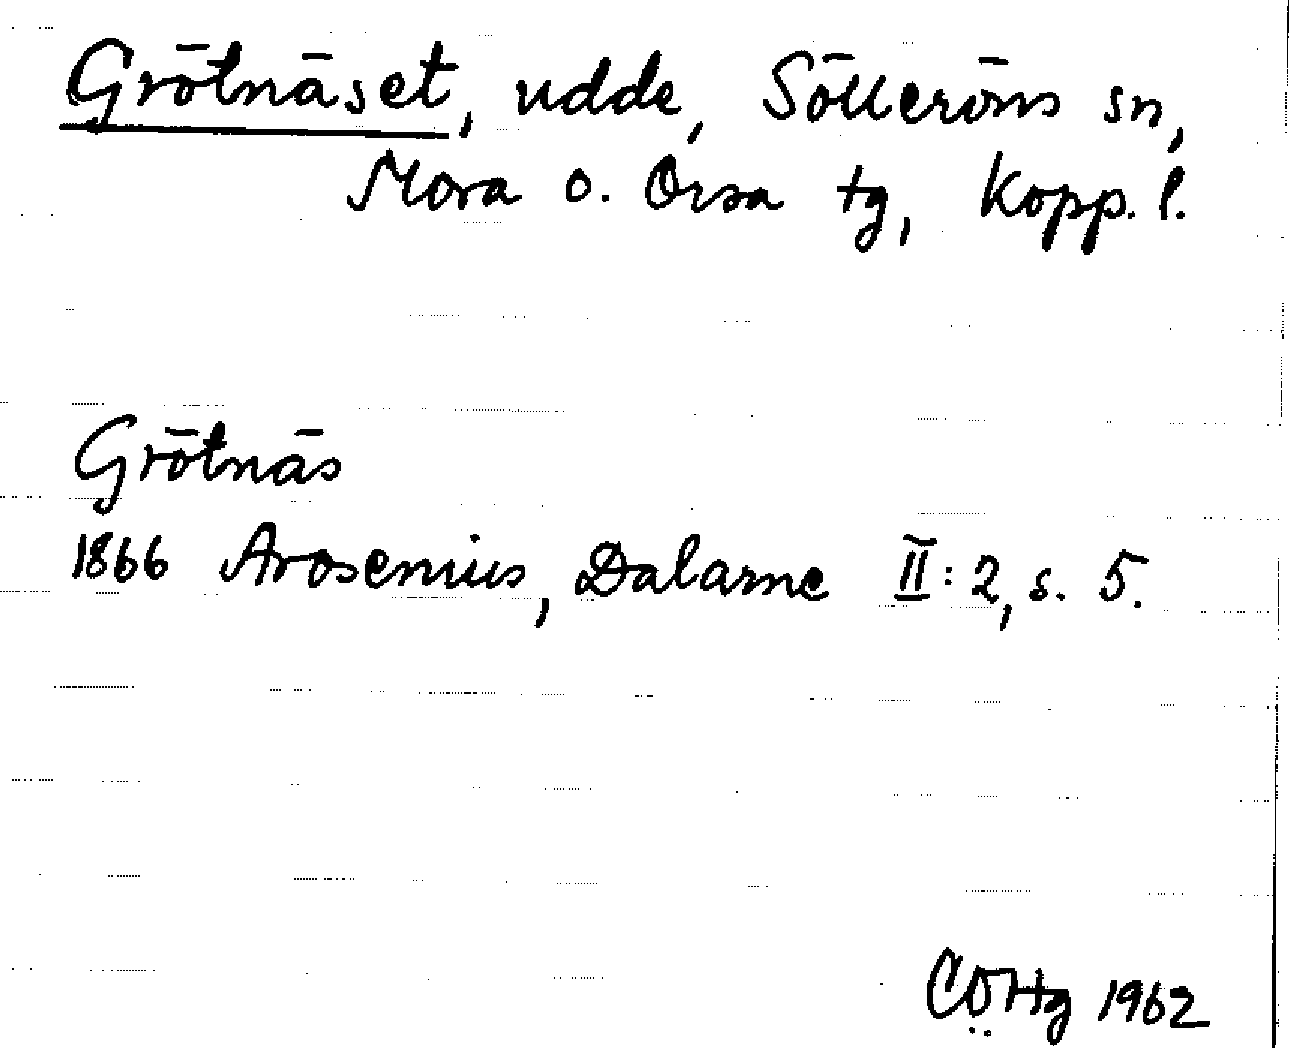 Grötnäset, udde, Sölleröns sn,
Mora o. Orsa tg, Kopp. l.
Grötnäs
1866 Arosenius, Dalarne II:2, s. 5.
CÖHg 1962